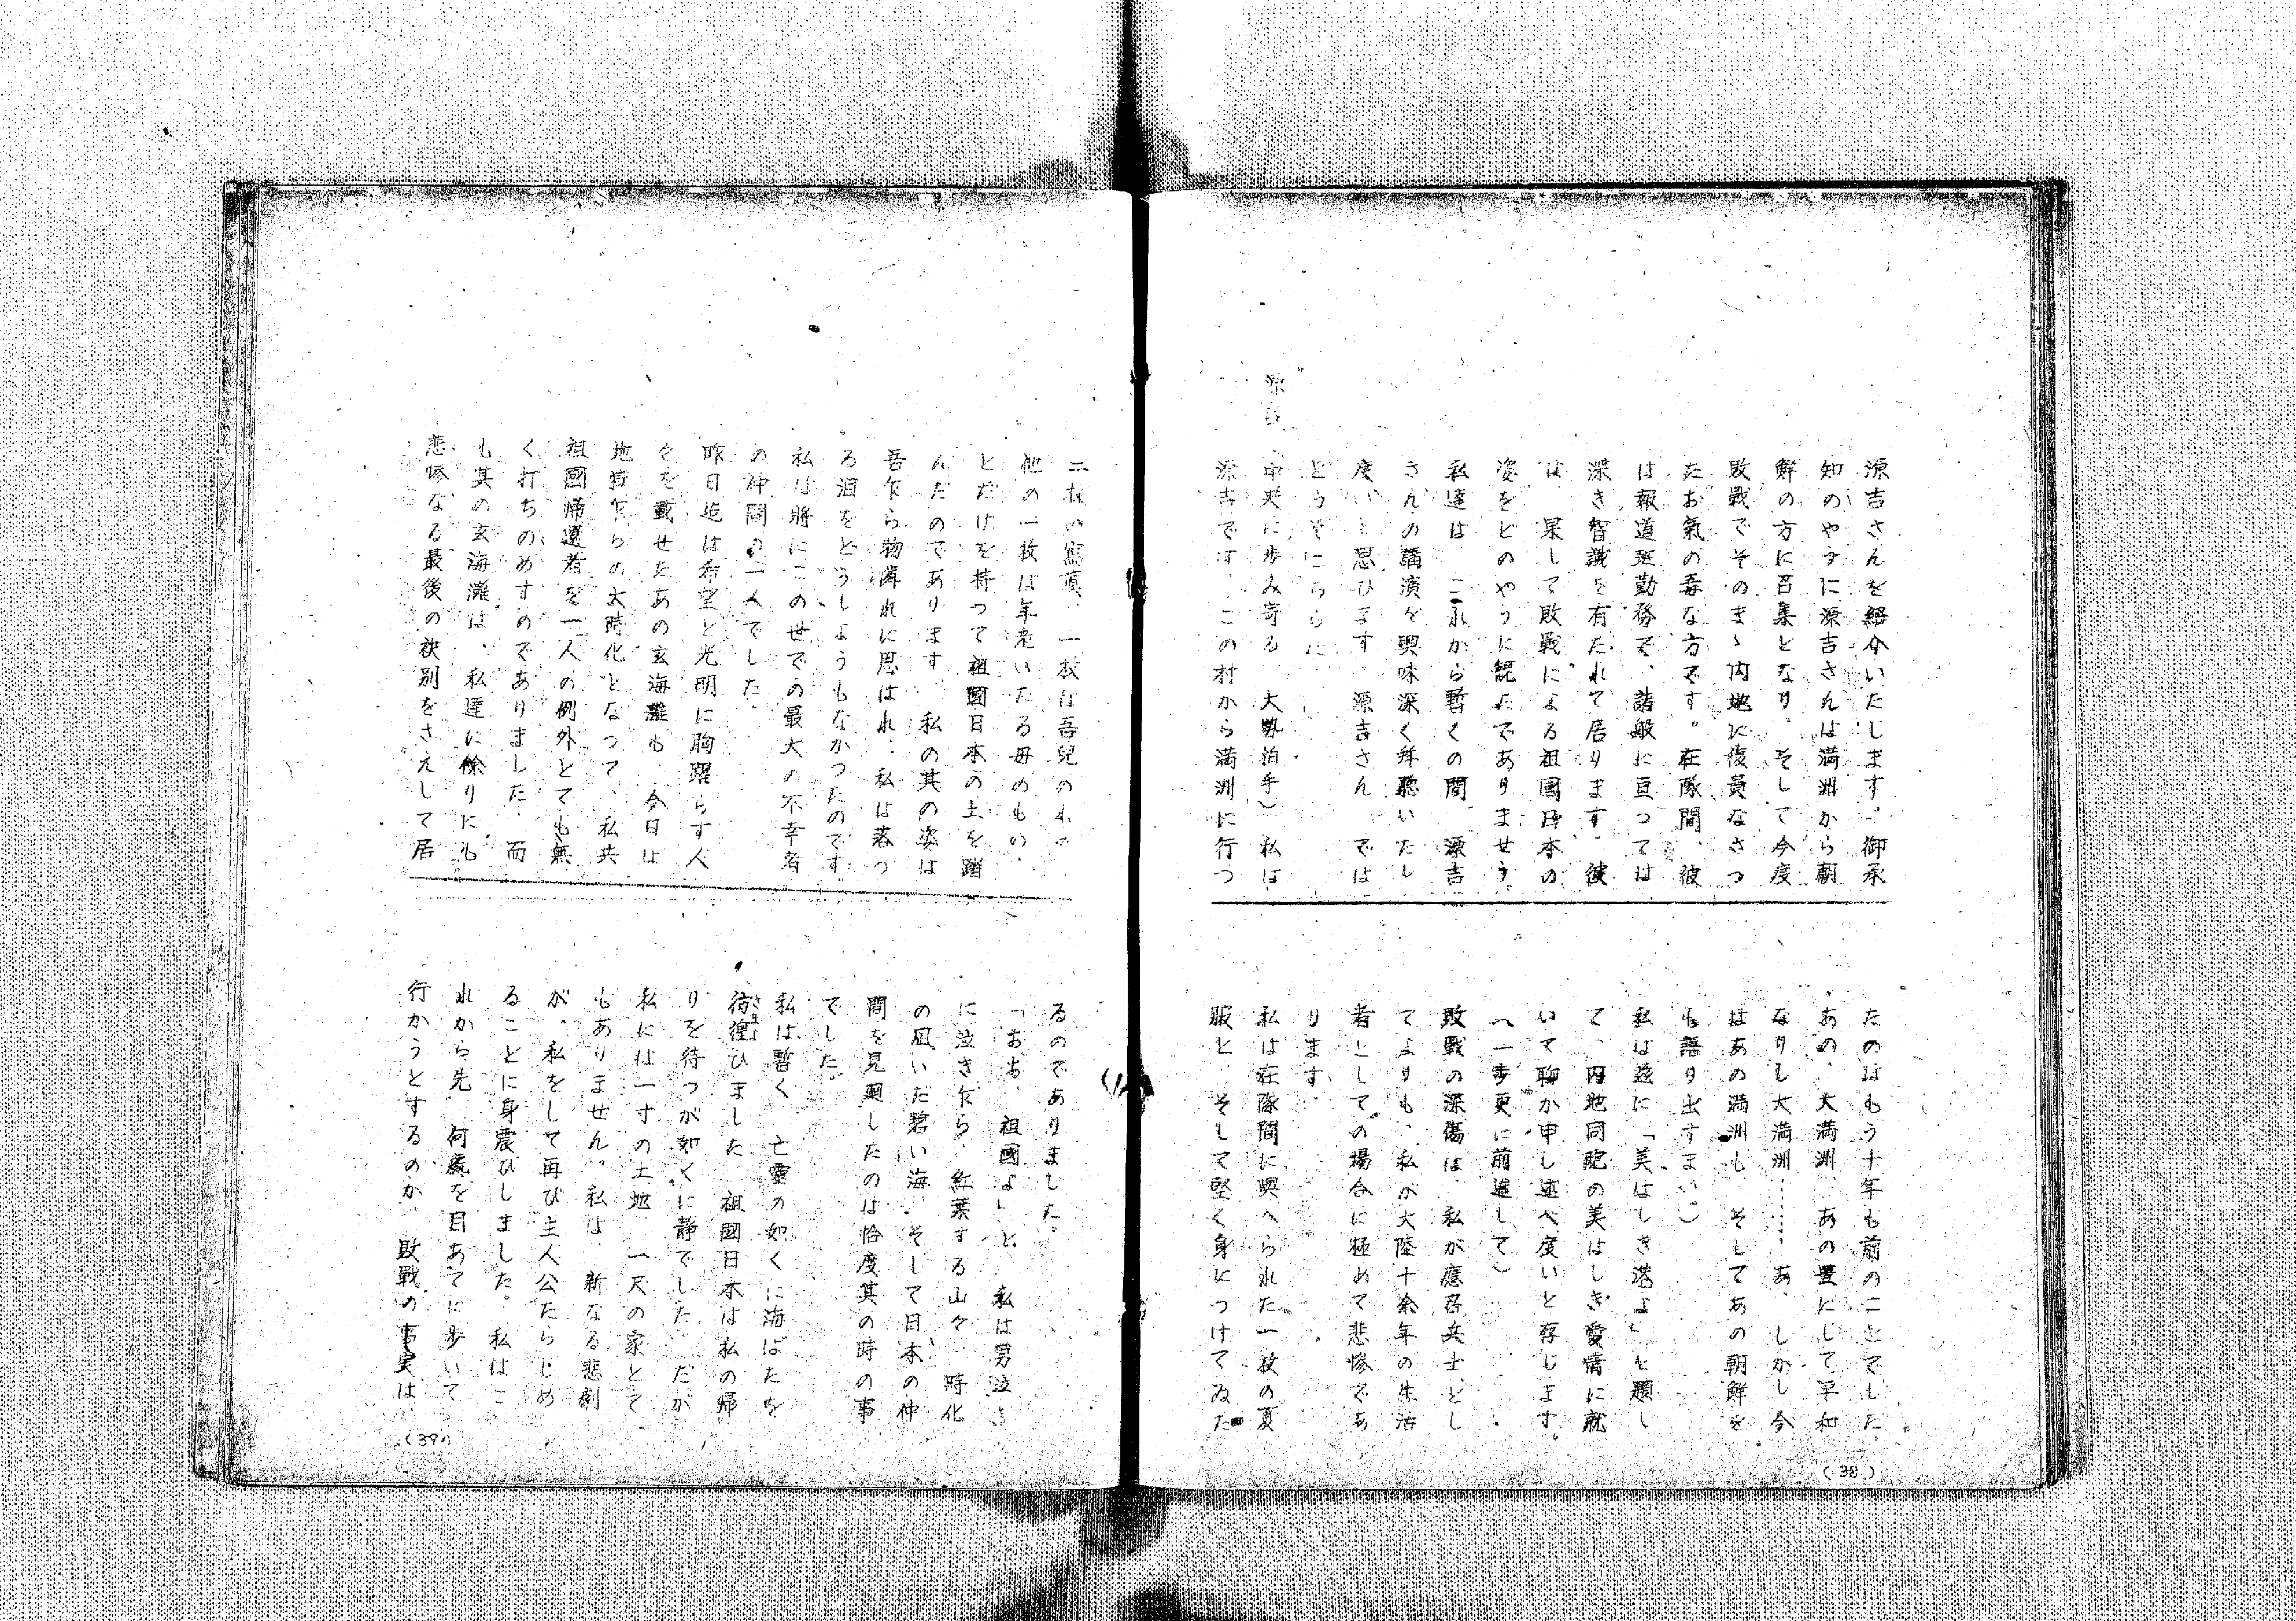 源吉さんを紹介いたします。御承
知のやうに源吉さんは満洲から朝
鮮の方に召集となり、そして今度
敗戦でそのまゝ内地に復員なさつ
たお氣の毒な方です。在隊間、彼
は報道班勤務で、諸般に亘つては
深き智識を有たれて居ります。彼
は、果して敗戦による祖國日本の
姿をどのやうに観たでありませう
私達は、これから暫くの間、源吉
さんの講演を興味深く拜聽いたし
度いと思ひます、源吉さん、では
どうぞこちらに
源吉
中央に歩み寄る、大勢泊手）私は
源吉です、この村から満洲に行つ
たのはもう十年も前のことでした。
あの、大満洲、あの豊にして平和
なりし大満洲……あゝしかし今
はあの満洲も、そしてあの朝鮮を
も語り出すまい。）
私は茲に「美はしき港よ」と題し
て、内地同胞の美はしき愛情に就
いて聊か申し述べ度いと存じます。
（一歩更に前進して）
敗戦の深傷は、私が應召兵士とし
てよりも、私が大陸十余年の生活
者としての場合に極めて悲惨であ
ります。
私は在隊間に與へられた一枚の夏
服と、そして堅く身につけてゐた
(38)
二枚の寫真、一枚は吾兒のもの
他の一枚は年老いたる母のもの、
とだけを持つて祖國日本の土を踏
んだのであります、私の其の姿は
吾乍ら物憐れに思はれ、私は落つ
る涙をどうしようもなかつたのです
私は將にこの世での最大の不幸者
の仲間の一人でした。
昨日迄は希望と光明に胸躍らす人
々を載せたあの玄海灘も、今日は
地獄乍らの大時化となつて、私共
祖國帰還者を一人の例外とても無
く打ちのめすのでありました、而
も其の玄海灘は、私達に餘りにも
悲惨なる最後の袂別をさえして居
るのでありました。
「おお、祖國よ」と、私は男泣き
に泣き乍ら、紅葉する山々、時化
の凪いだ碧い海、そして日本の仲
間を見出したのは恰度其の時の事
でした。
私は暫く、亡靈の如くに海ばたを
彷徨ひました、祖國日本は私の帰
りを待つが如くに静でした、だが
私には一寸の土地、一尺の家とて
もありません。私は、新なる悲劇
が、私をして再び主人公たらしめ
ることに身震ひしました。私はこ
れから先、何處を目あてに歩いて
行かうとするのか、敗戦の事実は
(39)